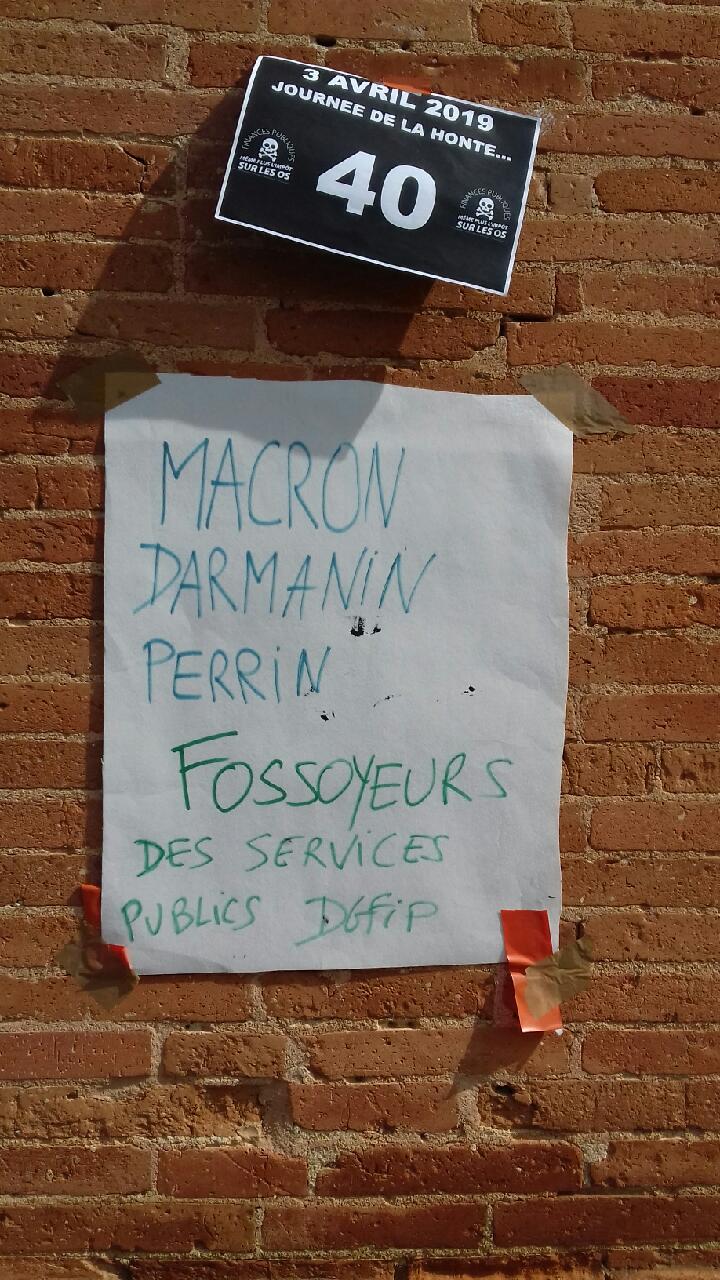 3 AVRIL 2019
JOURNEE DE LA HONTE...
40
FINANCES PUBLIQUES
MÊME PLUS L'IMPÔT
SUR LES OS
FINANCES PUBLIQUES
MÊME PLUS L'IMPÔT
SUR LES OS
MACRON
DARMANiN
PERRiN
FOSSOYEURS
DES SERViCES
PUBLiCS DGFiP